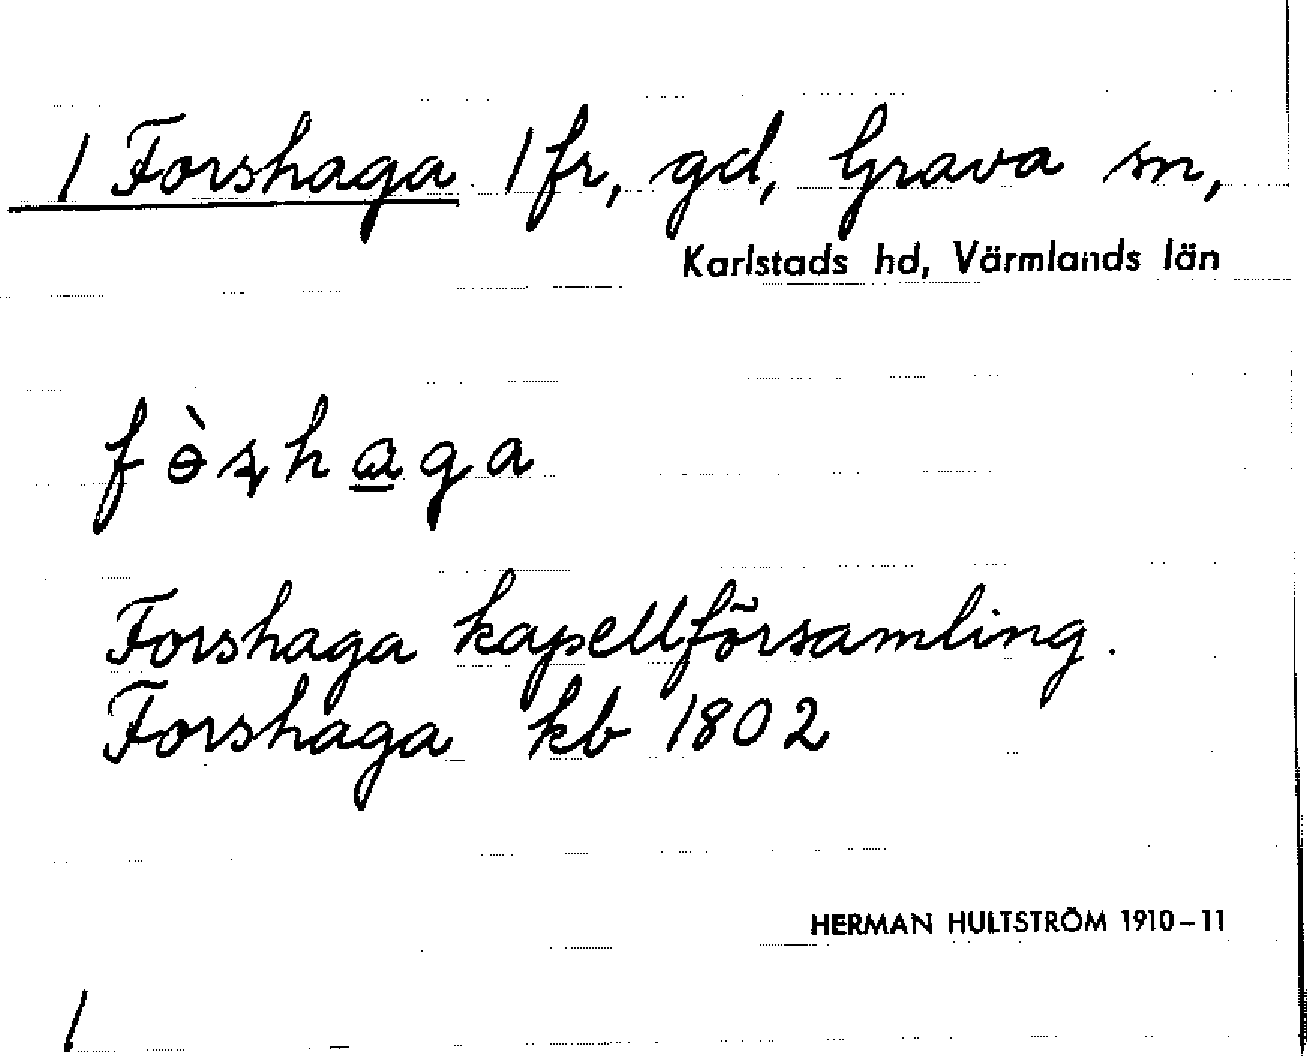 1 Forshaga 1 fr, gd, Grava sn,
Karlstads hd, Värmlands län
Forshaga kapellförsamling.
Forshaga kb 1802
HERMAN HULTSTRÖM 1910–11
1